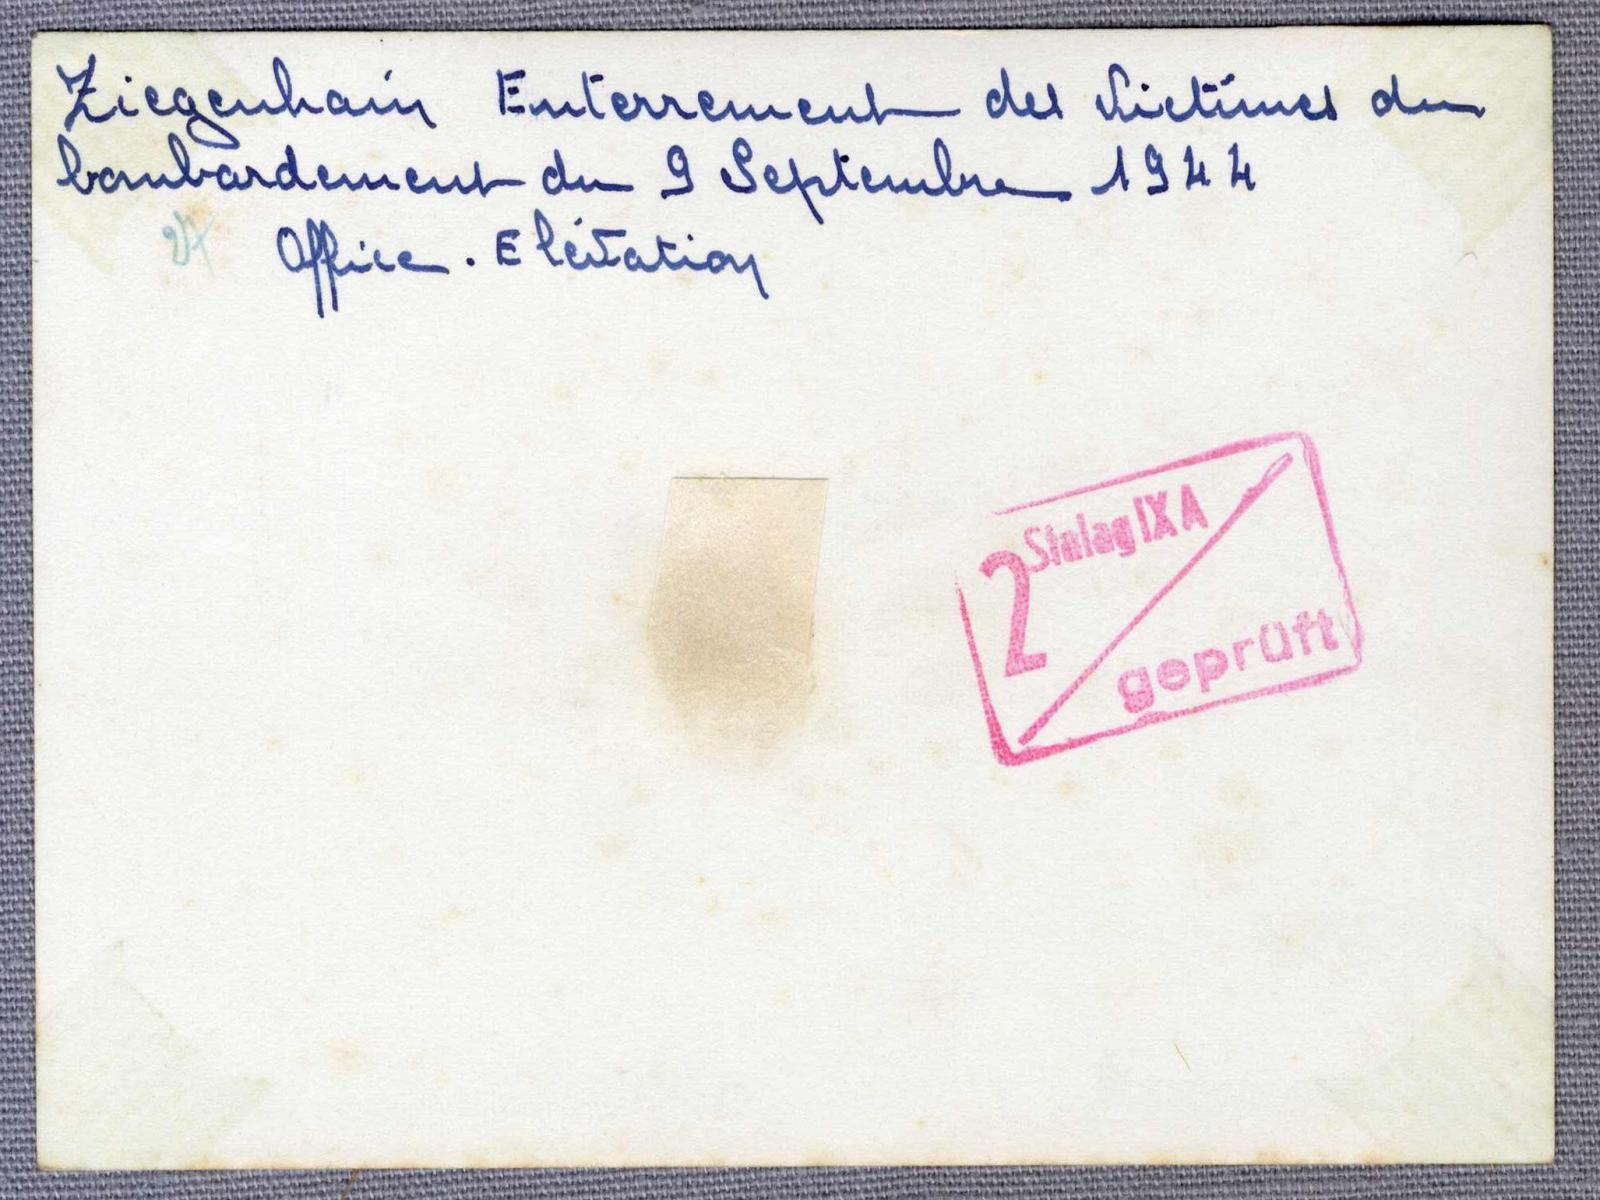 Ziegenhain Enterrement des Victimes du
bombardement du 9 Septembre 1944
Office. Elévation
Stalag IX A
2
geprüft